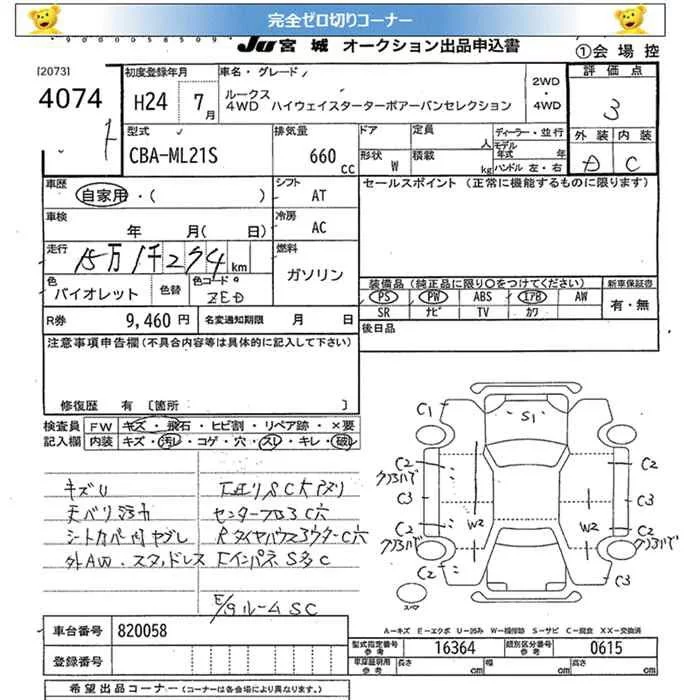 完全ゼロ切りコーナー
JU宮城 オークション出品申込書
①会場控
[2073]
4074
初度登録年月
H24 7月
車名・グレード
ルークス
4WD ハイウェイスターターボアーバンセレクション
2WD
・
4WD
評価点
3
外装 内装
D C
型式
CBA-ML21S
排気量
660cc
ドア
形状 W
定員 人
積載 kg
ディーラー・並行
モデル年式 年
ハンドル 左・右
車歴
自家用・( )
シフト
AT
セールスポイント (正常に機能するものに限ります)
車検
年 月( 日)
冷房
AC
走行
15万1千274km
燃料
ガソリン
色
バイオレット
色替
色コード
ZED
装備品 (純正品に限り○をつけてください)
PS PW ABS エアB AW
SR ナビ TV カワ
新車保証書
有・無
R券 9,460円
名変通知期限 月 日
後日品
注意事項申告欄(不具合内容等は具体的に記入して下さい)
修復歴 有 〔箇所 〕
検査員記入欄
FW キズ・飛石・ヒビ割・リペア跡・×要
内装 キズ・汚レ・コゲ・穴・スレ・キレ・破レ
キズU
天ベリ汚れ
シートカバー内ヤブレ
外AW・スタッドレス
センターフロアC穴
RタイヤハウスアウターC穴
FインパネS多C
E/gルームSC
C1
S1
C2
クリアハゲ
C3
C2
クリアハゲ
C2
W2
W2
C2
クリアハゲ
C3
C2
クリアハゲ
C3
スペア
A-キズ E-エクボ U-凹み W-補修跡 S-サビ C-腐食 XX-交換済
車台番号 820058
登録番号
型式指定番号 参考 16364
類別区分番号 参考 0615
車庫証明用 参考 長さ cm 幅 cm 高さ cm
希望出品コーナー (コーナーは各会場により異なります。)